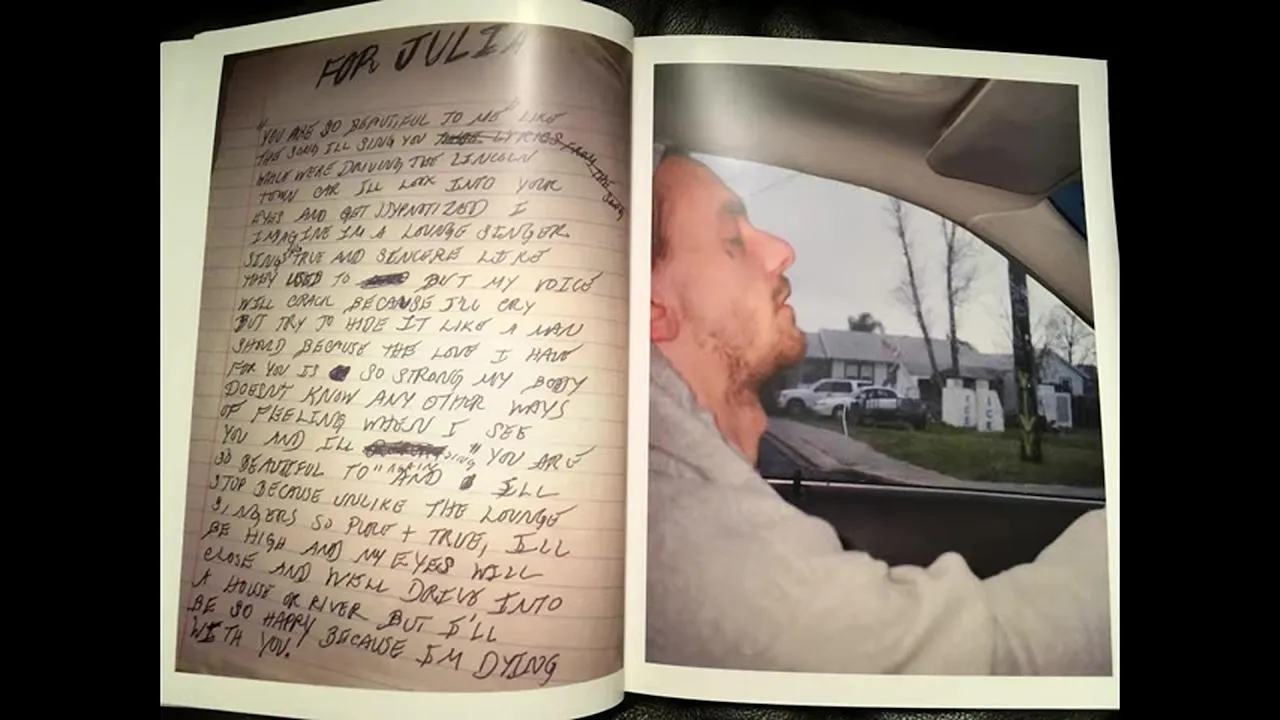 FOR JULIA
"YOU ARE SO BEAUTIFUL TO ME" LIKE
THE SONG I'LL SING YOU THESE LYRICS FROM THE SONG
WHILE WERE DRIVING THE LINCOLN
TOWN CAR ILL LOOK INTO YOUR
EYES AND GET HYPNOTIZED I
IMAGINE IM A LOUNGE SINGER
SINGING TRUE AND SINCERE LIKE
THEY USED TO BUT MY VOICE
WILL CRACK BECAUSE I'LL CRY
BUT TRY TO HIDE IT LIKE A MAN
SHOULD BECAUSE THE LOVE I HAVE
FOR YOU IS SO STRONG MY BODY
DOESNT KNOW ANY OTHER WAYS
OF FEELING WHEN I SEE
YOU AND I'LL SING "YOU ARE
SO BEAUTIFUL TO" AGAIN AND ILL
STOP BECAUSE UNLIKE THE LOUNGE
SINGERS SO PURE + TRUE, ILL
BE HIGH AND MY EYES WILL
CLOSE AND WELL DRIVE INTO
A HOUSE OR RIVER BUT I'LL
BE SO HAPPY BECAUSE IM DYING
WITH YOU.
ICE
ICE